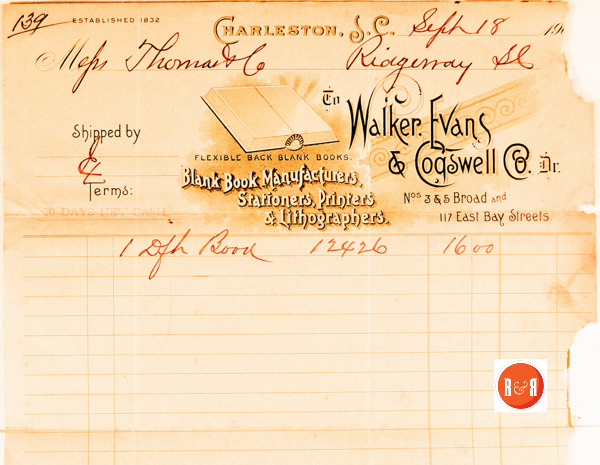 139
ESTABLISHED 1832
CHARLESTON, S.C. Sept 18 190
Mess Thomas & Co Ridgeway SC
To
Walker, Evans
& Cogswell Co. Dr.
Shipped by
FLEXIBLE BACK BLANK BOOKS.
Blank Book Manufacturers,
Stationers, Printers
& Lithographers.
Nos 3 & 5 Broad and
117 East Bay Streets
Terms:
1 12426 16 00
R&R